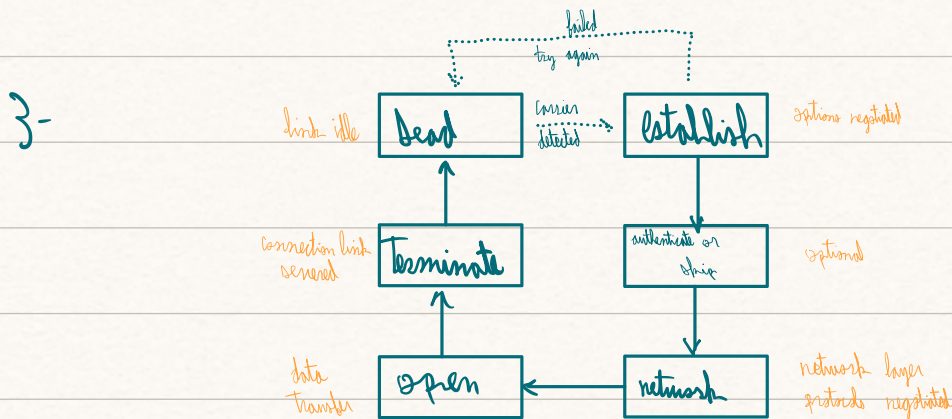 failed
try again
3-
link idle
Dead
Carrier
detected
establish
options negotiated
connection link
severed
Terminate
authenticate or
skip
optional
data
transfer
open
network
network layer
protocols negotiated